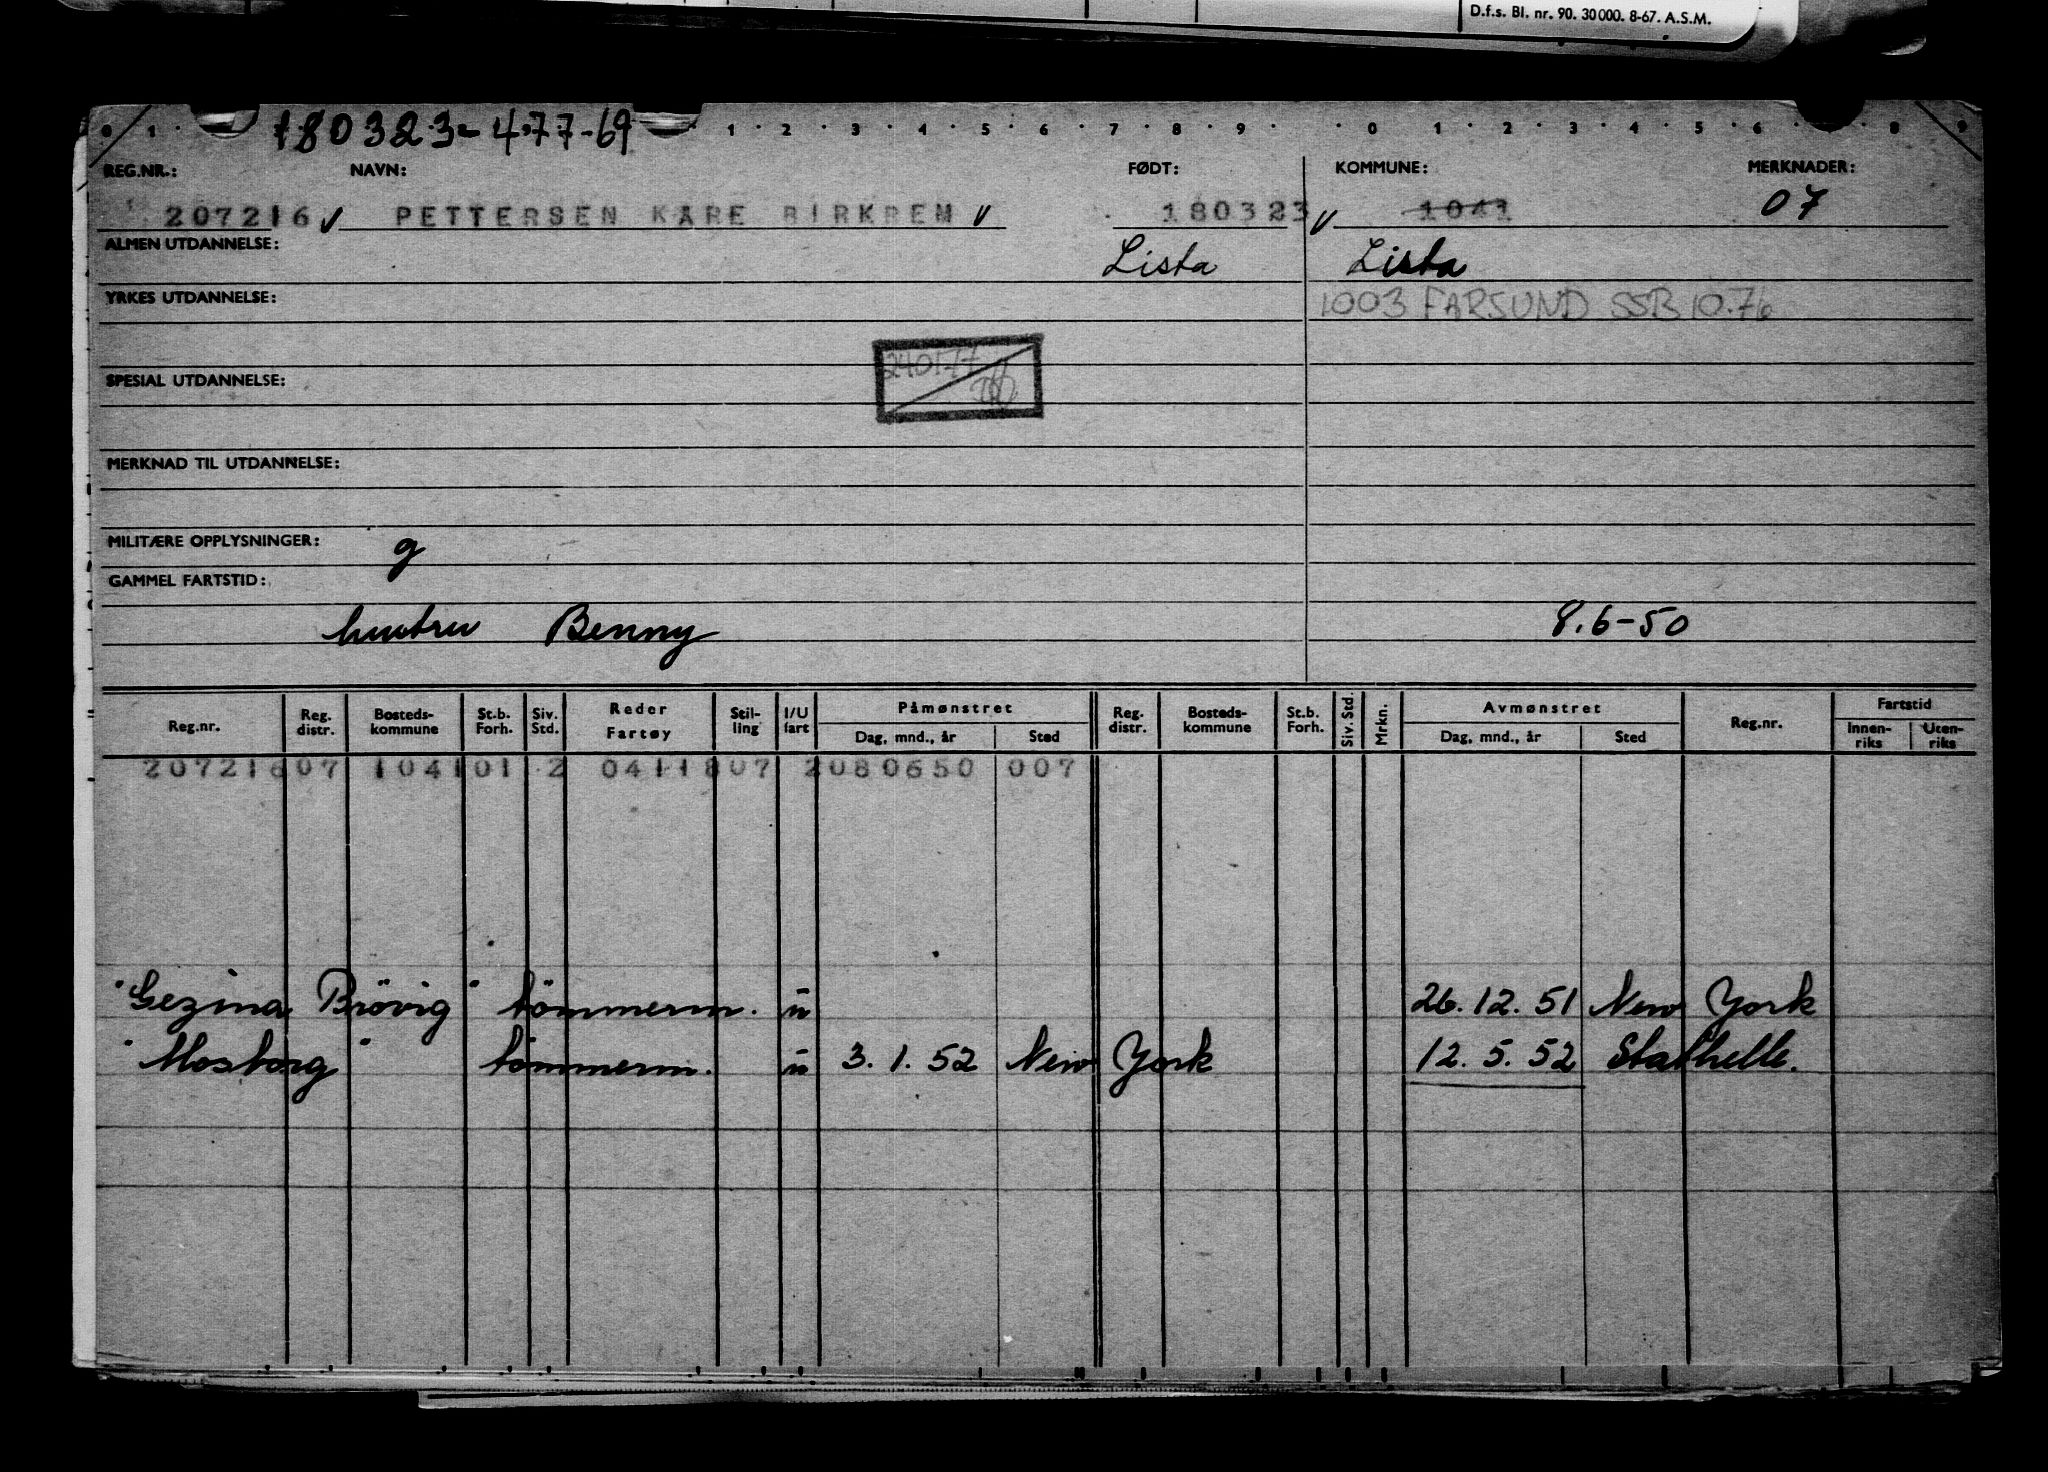 D.f.s. Bl. nr. 90. 30000. 8-67. A.S.M.
180323-477-69
0 1 1 2 3 4 5 6 7 8 9 0 1 2 3 4 5 6 8 9
REG.NR.: NAVN: FØDT: KOMMUNE: MERKNADER:
207216 PETTERSEN KARE BIRKREM 180323 1041 07
ALMEN UTDANNELSE: Lista Lista
YRKES UTDANNELSE: 1003 FARSUND SSB 10.76
240177
SPESIAL UTDANNELSE:
MERKNAD TIL UTDANNELSE:
MILITÆRE OPPLYSNINGER: g
GAMMEL FARTSTID:
hustru Benny 8.6-50
Reg.nr. Reg. distr. Bosteds-kommune St.b. Forh. Siv. Std. Reder Fartøy Stil-ling I/U fart Påmønstret Dag, mnd., år Sted Reg. distr. Bosteds-kommune St.b. Forh. Siv. Std. Mrkn. Avmønstret Dag, mnd., år Sted Reg.nr. Fartstid Innen-riks Uten-riks
207216 07 1041 01 2 0411807 2 080650 007
"Gezina Brövig" tömmerm. u 26.12.51 New York
"Mosborg" tömmerm. u 3.1.52 New York 12.5.52 Stathelle.